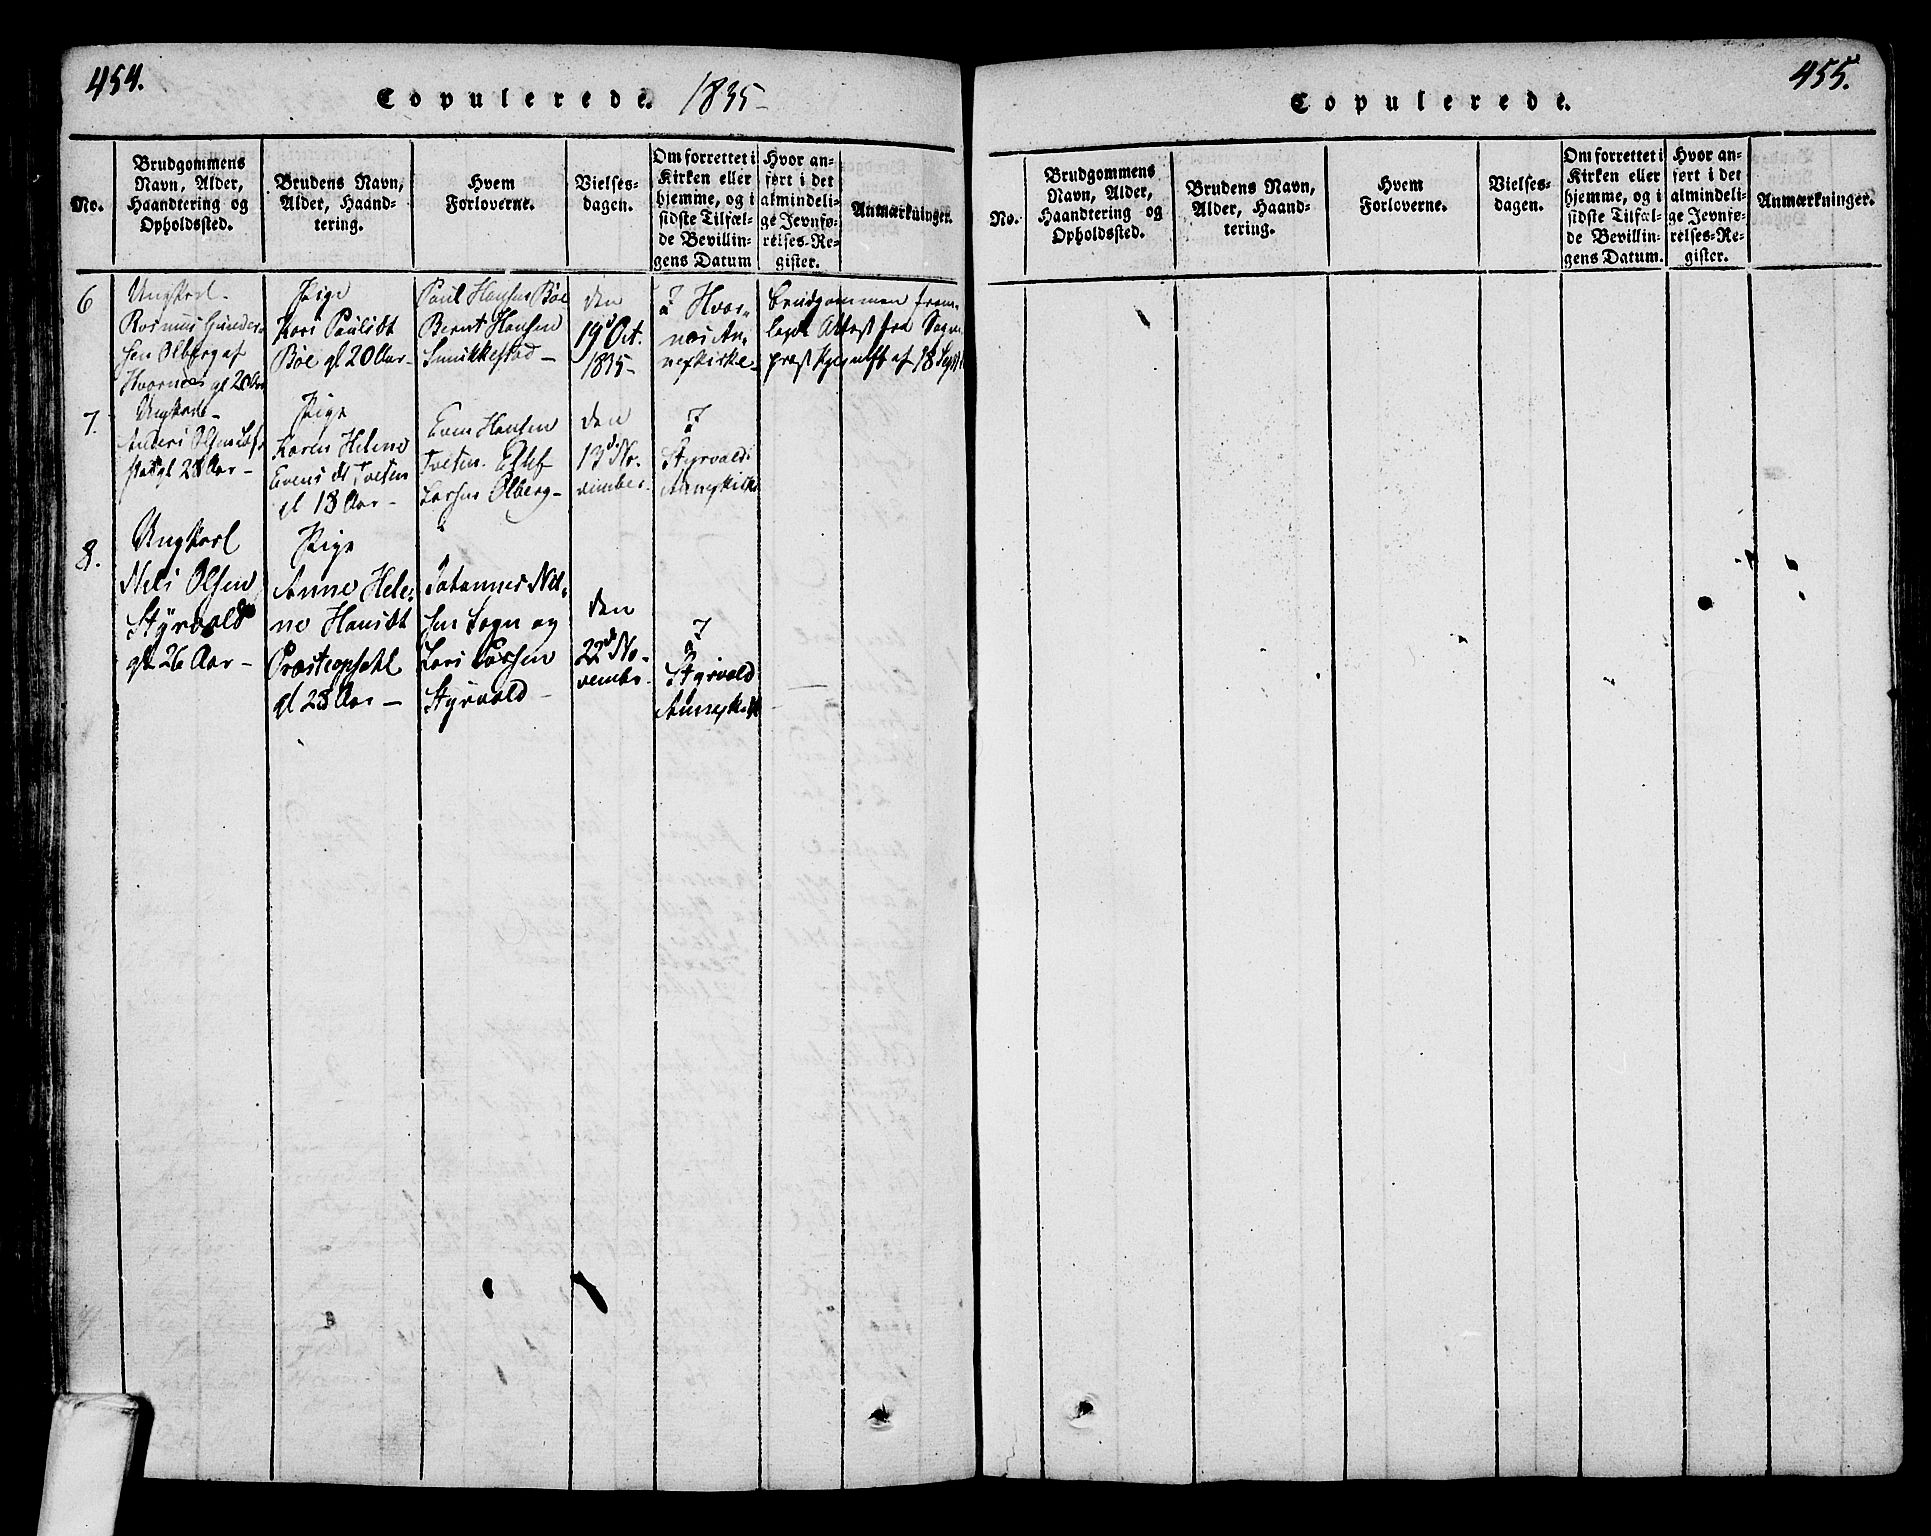 454.
Copulerede. 1835-
No.
Brudgommens
Navn, Alder,
Haandtering og
Opholdssted.
Brudens Navn,
Alder, Haand-
tering.
Hvem
Forloverne.
Vielses-
dagen.
Om forrettet i
Kirken eller
hjemme, og i
sidste Tilfæl-
de Bevillin-
gens Datum
Hvor an-
ført i det
almindeli-
ge Jevnfø-
relses-Re-
gister.
Anmærkninger.
6
Ungkarl
Rasmus Gunder-
sen Olberg af
Hvarnes gl 28 Aar
Pige
Kari Paulsdt
Böe gl 20 Aar-
Paul Hansen Böe
Bernt Hansen
den
19d Oct.
1835-
I Hvar-
næs An-
nexkirke-
Brudgommen frem-
lagt Attest fra Sogne-
præst af 18 Sept
7.
Ungkarl-
Anders Olsen
gl 28 Aar-
Pige
Karen Helene
Evensdt Tveten
gl 18 Aar-
Even Hansen
Tveten.
Larsen Olberg-
den
13d No-
vember.
I
Styrvold
Annexkirke
8.
Ungkarl
Nels Olsen
Styrvold
gl 26 Aar-
Pige
Anne Hele-
ne Hansdt
Præsteopsahl
gl 28 Aar-
Johannes Nil-
sen Sogn og
Lars Larsen
Styrvold-
den
22d No-
vember.
I
Styrvold
Annexkirke
455.
Copulerede.
No.
Brudgommens
Navn, Alder,
Haandtering og
Opholdssted.
Brudens Navn,
Alder, Haand-
tering.
Hvem
Forloverne.
Vielses-
dagen.
Om forrettet i
Kirken eller
hjemme, og i
sidste Tilfæl-
de Bevillin-
gens Datum.
Hvor an-
ført i det
almindeli-
ge Jevnfø-
relses-Re-
gister.
Anmærkninger.